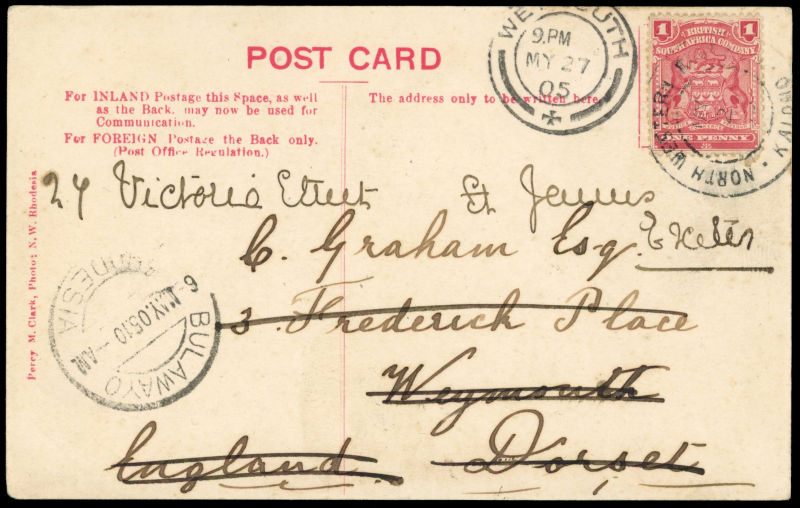 WEYMOUTH
9.PM
MY 27
05
1 BRITISH 1
SOUTH AFRICA COMPANY
ONE PENNY
NORTH WESTERN
KALOMO
POST CARD
For INLAND Postage this Space, as well
as the Back, may now be used for
Communication.
For FOREIGN Postage the Back only.
(Post Office Regulation.)
The address only to be written here.
24 Victoria Street St James
Exeter
C. Graham Esq.
3. Frederick Place
Weymouth
England. Dorset
BULAWAYO
RHODESIA
6 MY.05 10-AM
Percy M. Clark, Photo; N.W. Rhodesia